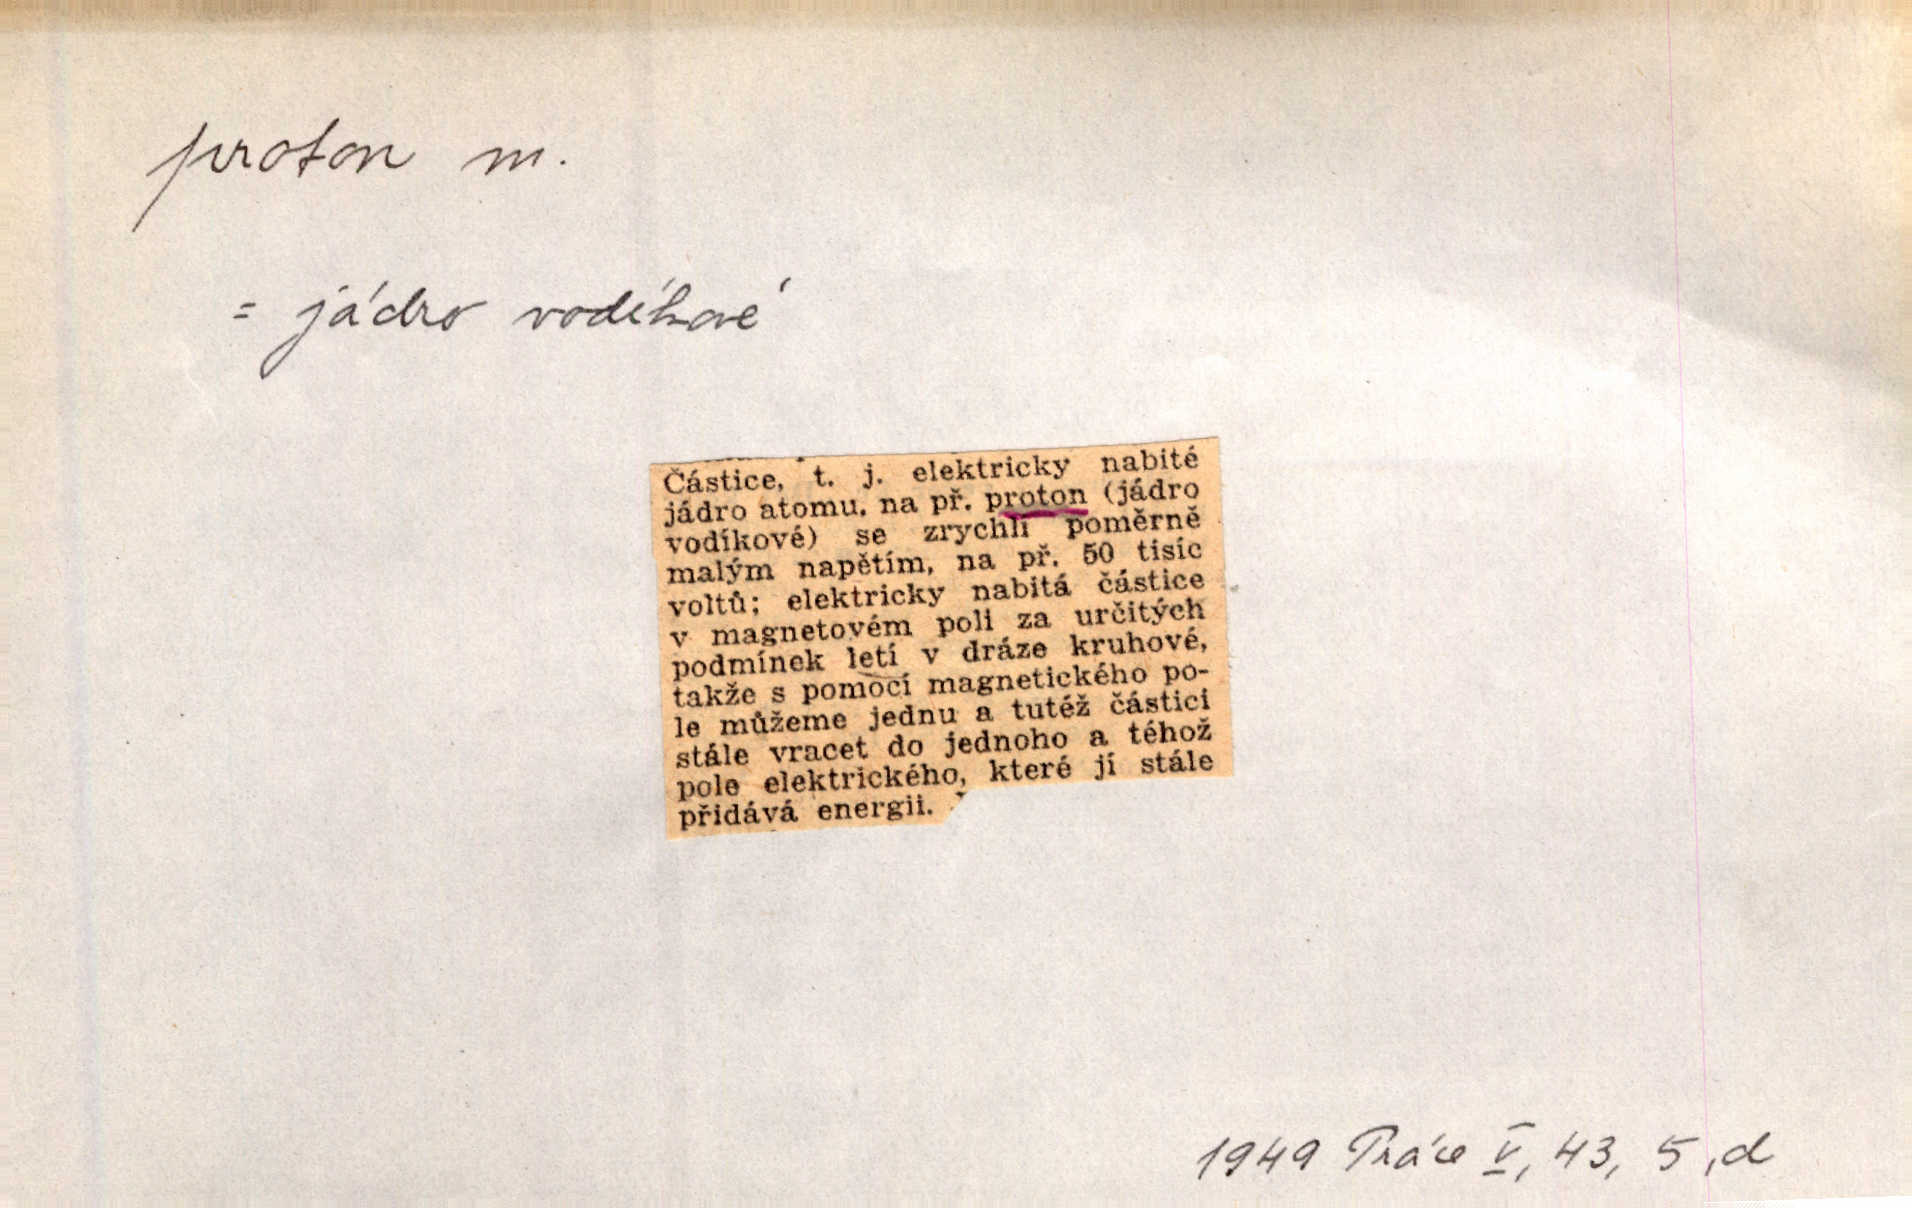 proton m.
= jádro vodíkové
Částice, t. j. elektricky nabité
jádro atomu, na př. proton (jádro
vodíkové) se zrychlí poměrně
malým napětím, na př. 50 tisíc
voltů; elektricky nabitá částice
v magnetovém poli za určitých
podmínek letí v dráze kruhové,
takže s pomocí magnetického po-
le můžeme jednu a tutéž částici
stále vracet do jednoho a téhož
pole elektrického, které jí stále
přidává energii.
1949 Práce V, 43, 5, d